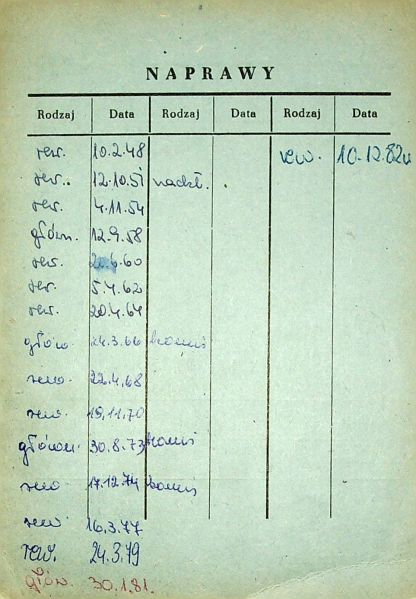 NAPRAWY
Rodzaj Data Rodzaj Data Rodzaj Data
rew. 10.2.48 rew. 10.12.82r
rew. 12.10.51 nadzł.
rew. 4.11.54
główn. 12.9.58
rew. 6.60
rew. 5.4.62
rew. 20.4.64
główn. 24.3.66
rew. 22.4.68
rew. 19.11.70
główn. 30.8.73
rew. 17.12.74
rew. 16.3.77
rew. 24.3.79
główn. 30.1.81.